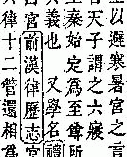 以選寒暑宮之言
天子謂之六
秦始定為至尊所
義也又學名
官前漢律歷志宮
律十二管還相為